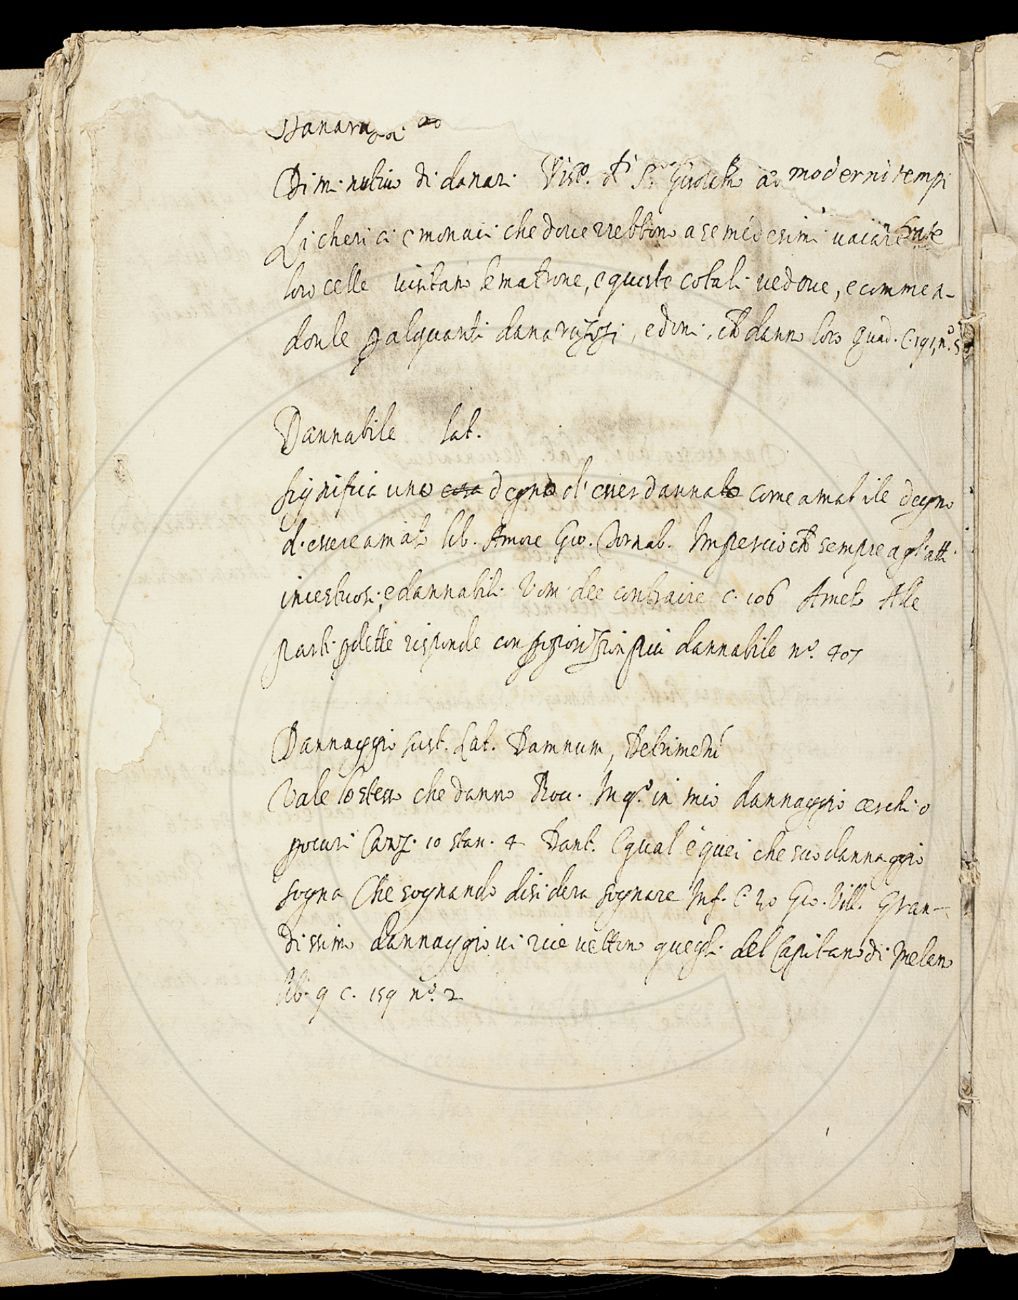 Danaruzzi
Diminutivo di danari Visº. di Sr. a moderni tempi
Li cherici e monaci che dovrebbono a se medesimi vacare frate
loro celle visitano le matrone, e queste cotali vedove, e commen-
donle p alquanti danaruzzi, e doni, ch danno loro Quad. C. 191, nº. 5
Dannabile lat.
significa uno cosa degno d'esser dannato come amabile degno
d'essere amato lib. Amore Gio. Bornab. Imperciò ch sempre agl'atti
incestuosi, e dannabili Vom dee contraire c. 106 Ameto Alle
parti pdette risponde con più dannabile nº. 407
Dannaggio sust. Lat. Damnum, Detrimentũ
Vale lo stesso che danno Rou. M qº. in mio dannaggio
procuri Canz. 10 stan. 4 Dant. E qual è quei che suo dannaggio
sogna Che sognando disidera sognare Inf. C 30 Gio. Vill. Gran-
dissimo dannaggio vi ricevettono quegli del Capitano di Melano
lib. 9 c. 159 nº. 2